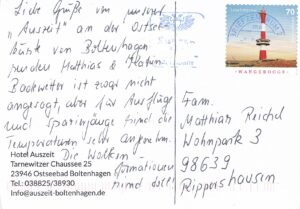 Liebe Grüße von unserer
"Auszeit" an der Ostsee-
küste von Boltenhagen
senden Matthias &
Badewetter ist zwar nicht
angesagt, aber für Ausflüge
und Spaziergänge sind die
Temperaturen sehr angenehm.
Die Wolken
formationen
sind
Hotel Auszeit
Tarnewitzer Chaussee 25
23946 Ostseebad Boltenhagen
Tel.: 038825/38930
info@auszeit-boltenhagen.de
70
WANGEROOGE
Fam.
Matthias Reichel
Wohnpark 3
98639
Rippershausen